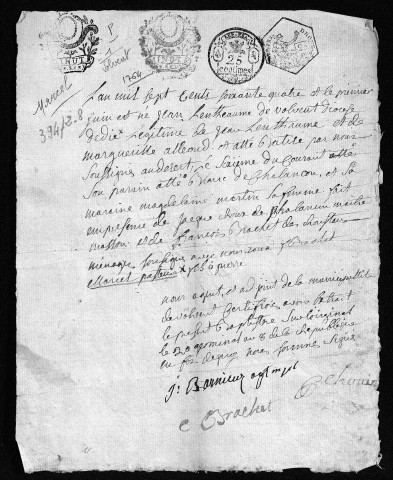 P
Volvent
1764
25
centimes
Marcel
394/2-8
Lan mil sept Cents soixante quatre et le premier
juin est né Jean Lenthaume de volvent diocese
de die Legitime de Jean Lenthaume et de
margueritte alleoud et atte batisé par nous
soussignes au desert, le sixieme du Courant atté
son parrin de Chalancon, et sa
maraine magdelaine martin sa femme fait
en presence de Jaque de Chalancon maitre
masson et de francois Brachet
ménager soussigné avec nous Brachet
Marcel pasteur
nous agent, et adjoint de la municipalité
de volvent Certifions avoir Extrait
le present Baptistere sur loriginal
le 20 germinal an 8 de la republique
en foy dequoy nous sommes signés
j: Barnieux agt mpal
C Brachet